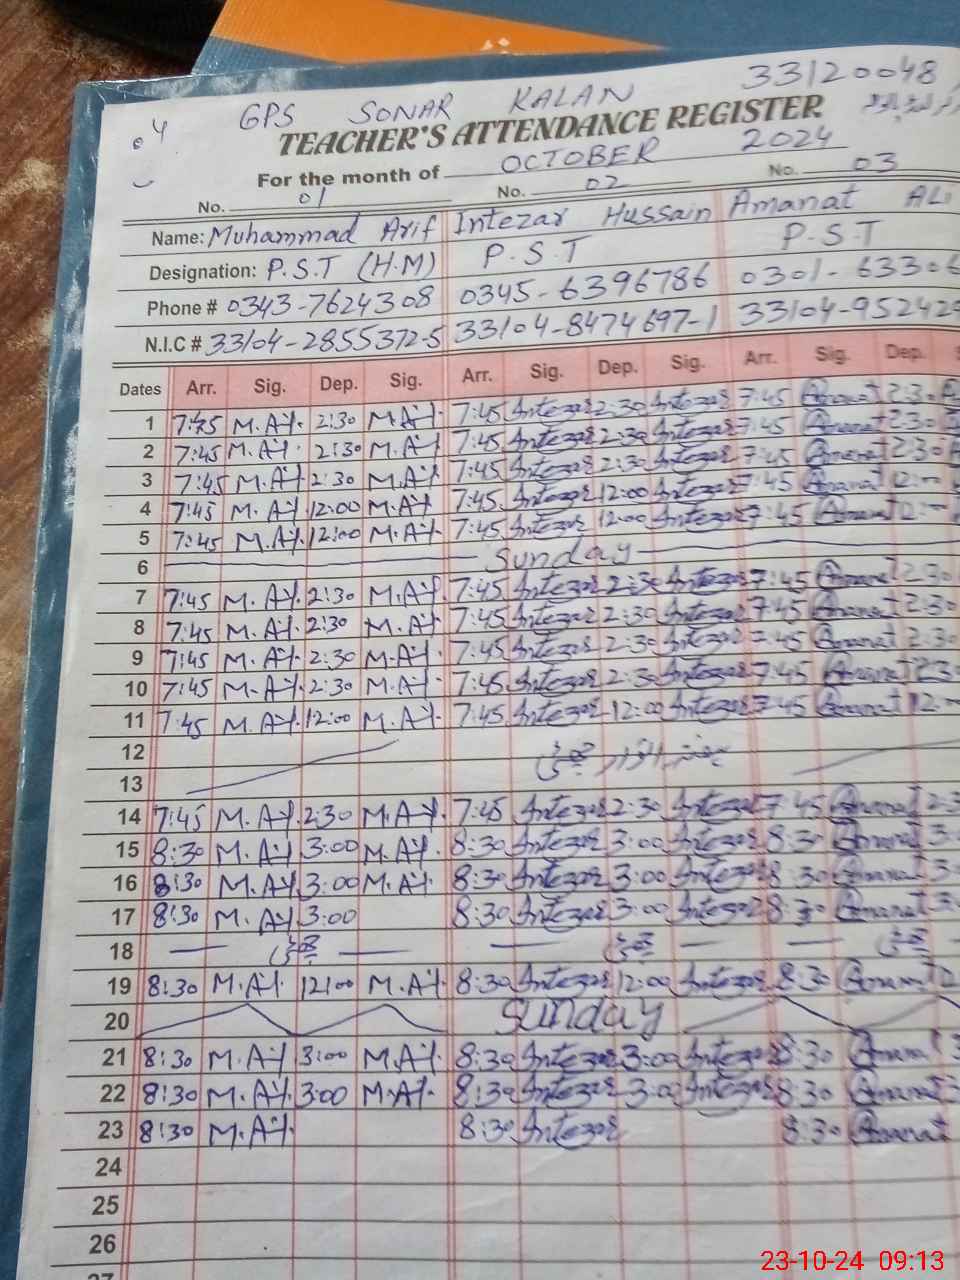 33120048
GPS SONAR KALAN
04
TEACHER'S ATTENDANCE REGISTER
For the month of OCTOBER 2024
No. 01 No. 02 No. 03
Name: Muhammad Arif Intezar Hussain Amanat ALi
Designation: P.S.T (H.M) P.S.T P.S.T
Phone # 0343-7624308 0345-6396786 0301-63306
N.I.C # 33104-2855372-5 33104-8474697-1 33104-952429
Dates Arr. Sig. Dep. Sig. Arr. Sig. Dep. Sig. Arr. Sig. Dep.
1 7:45 M.Aif. 2:30 M.Aif. 7:45 Intezar 2:30 Intezar 7:45 Amanat 2:30
2 7:45 M.Aif. 2:30 M.Aif 7:45 Intezar 2:30 Intezar 7:45 Amanat 2:30
3 7:45 M.Aif 2:30 M.Aif. 7:45 Intezar 2:30 Intezar 7:45 Amanat 2:30
4 7:45 M.Aif 12:00 M.Aif 7:45 Intezar 12:00 Intezar 7:45 Amanat 12:
5 7:45 M.Aif. 12:00 M.Aif. 7:45 Intezar 12:00 Intezar 7:45 Amanat 12:
6 Sunday
7 7:45 M.Aif. 2:30 M.Aif. 7:45 Intezar 2:30 Intezar 7:45 Amanat 2:30
8 7:45 M.Aif. 2:30 M.Aif. 7:45 Intezar 2:30 Intezar 7:45 Amanat 2:30
9 7:45 M.Aif. 2:30 M.Aif. 7:45 Intezar 2:30 Intezar 7:45 Amanat 2:30
10 7:45 M.Aif. 2:30 M.Aif. 7:45 Intezar 2:30 Intezar 7:45 Amanat 2:3
11 7:45 M.Aif. 12:00 M.Aif. 7:45 Intezar 12:00 Intezar 7:45 Amanat 12:
12
13
14 7:45 M.Aif. 2:30 M.Aif. 7:45 Intezar 2:30 Intezar 7:45 Amanat 2:3
15 8:30 M.Aif 3:00 M.Aif. 8:30 Intezar 3:00 Intezar 8:30 Amanat 3:
16 8:30 M.Aif 3:00 M.Aif. 8:30 Intezar 3:00 Intezar 8:30 Amanat 3:
17 8:30 M.Aif 3:00 8:30 Intezar 3:00 Intezar 8:30 Amanat 3:
18
19 8:30 M.Aif. 12:00 M.Aif. 8:30 Intezar 12:00 Intezar 8:30 Amanat
20 Sunday
21 8:30 M.Aif 3:00 M.Aif. 8:30 Intezar 3:00 Intezar 8:30 Amanat 3
22 8:30 M.Aif. 3:00 M.Aif. 8:30 Intezar 3:00 Intezar 8:30 Amanat 3
23 8:30 M.Aif. 8:30 Intezar 8:30 Amanat
24
25
26
27
23-10-24 09:13